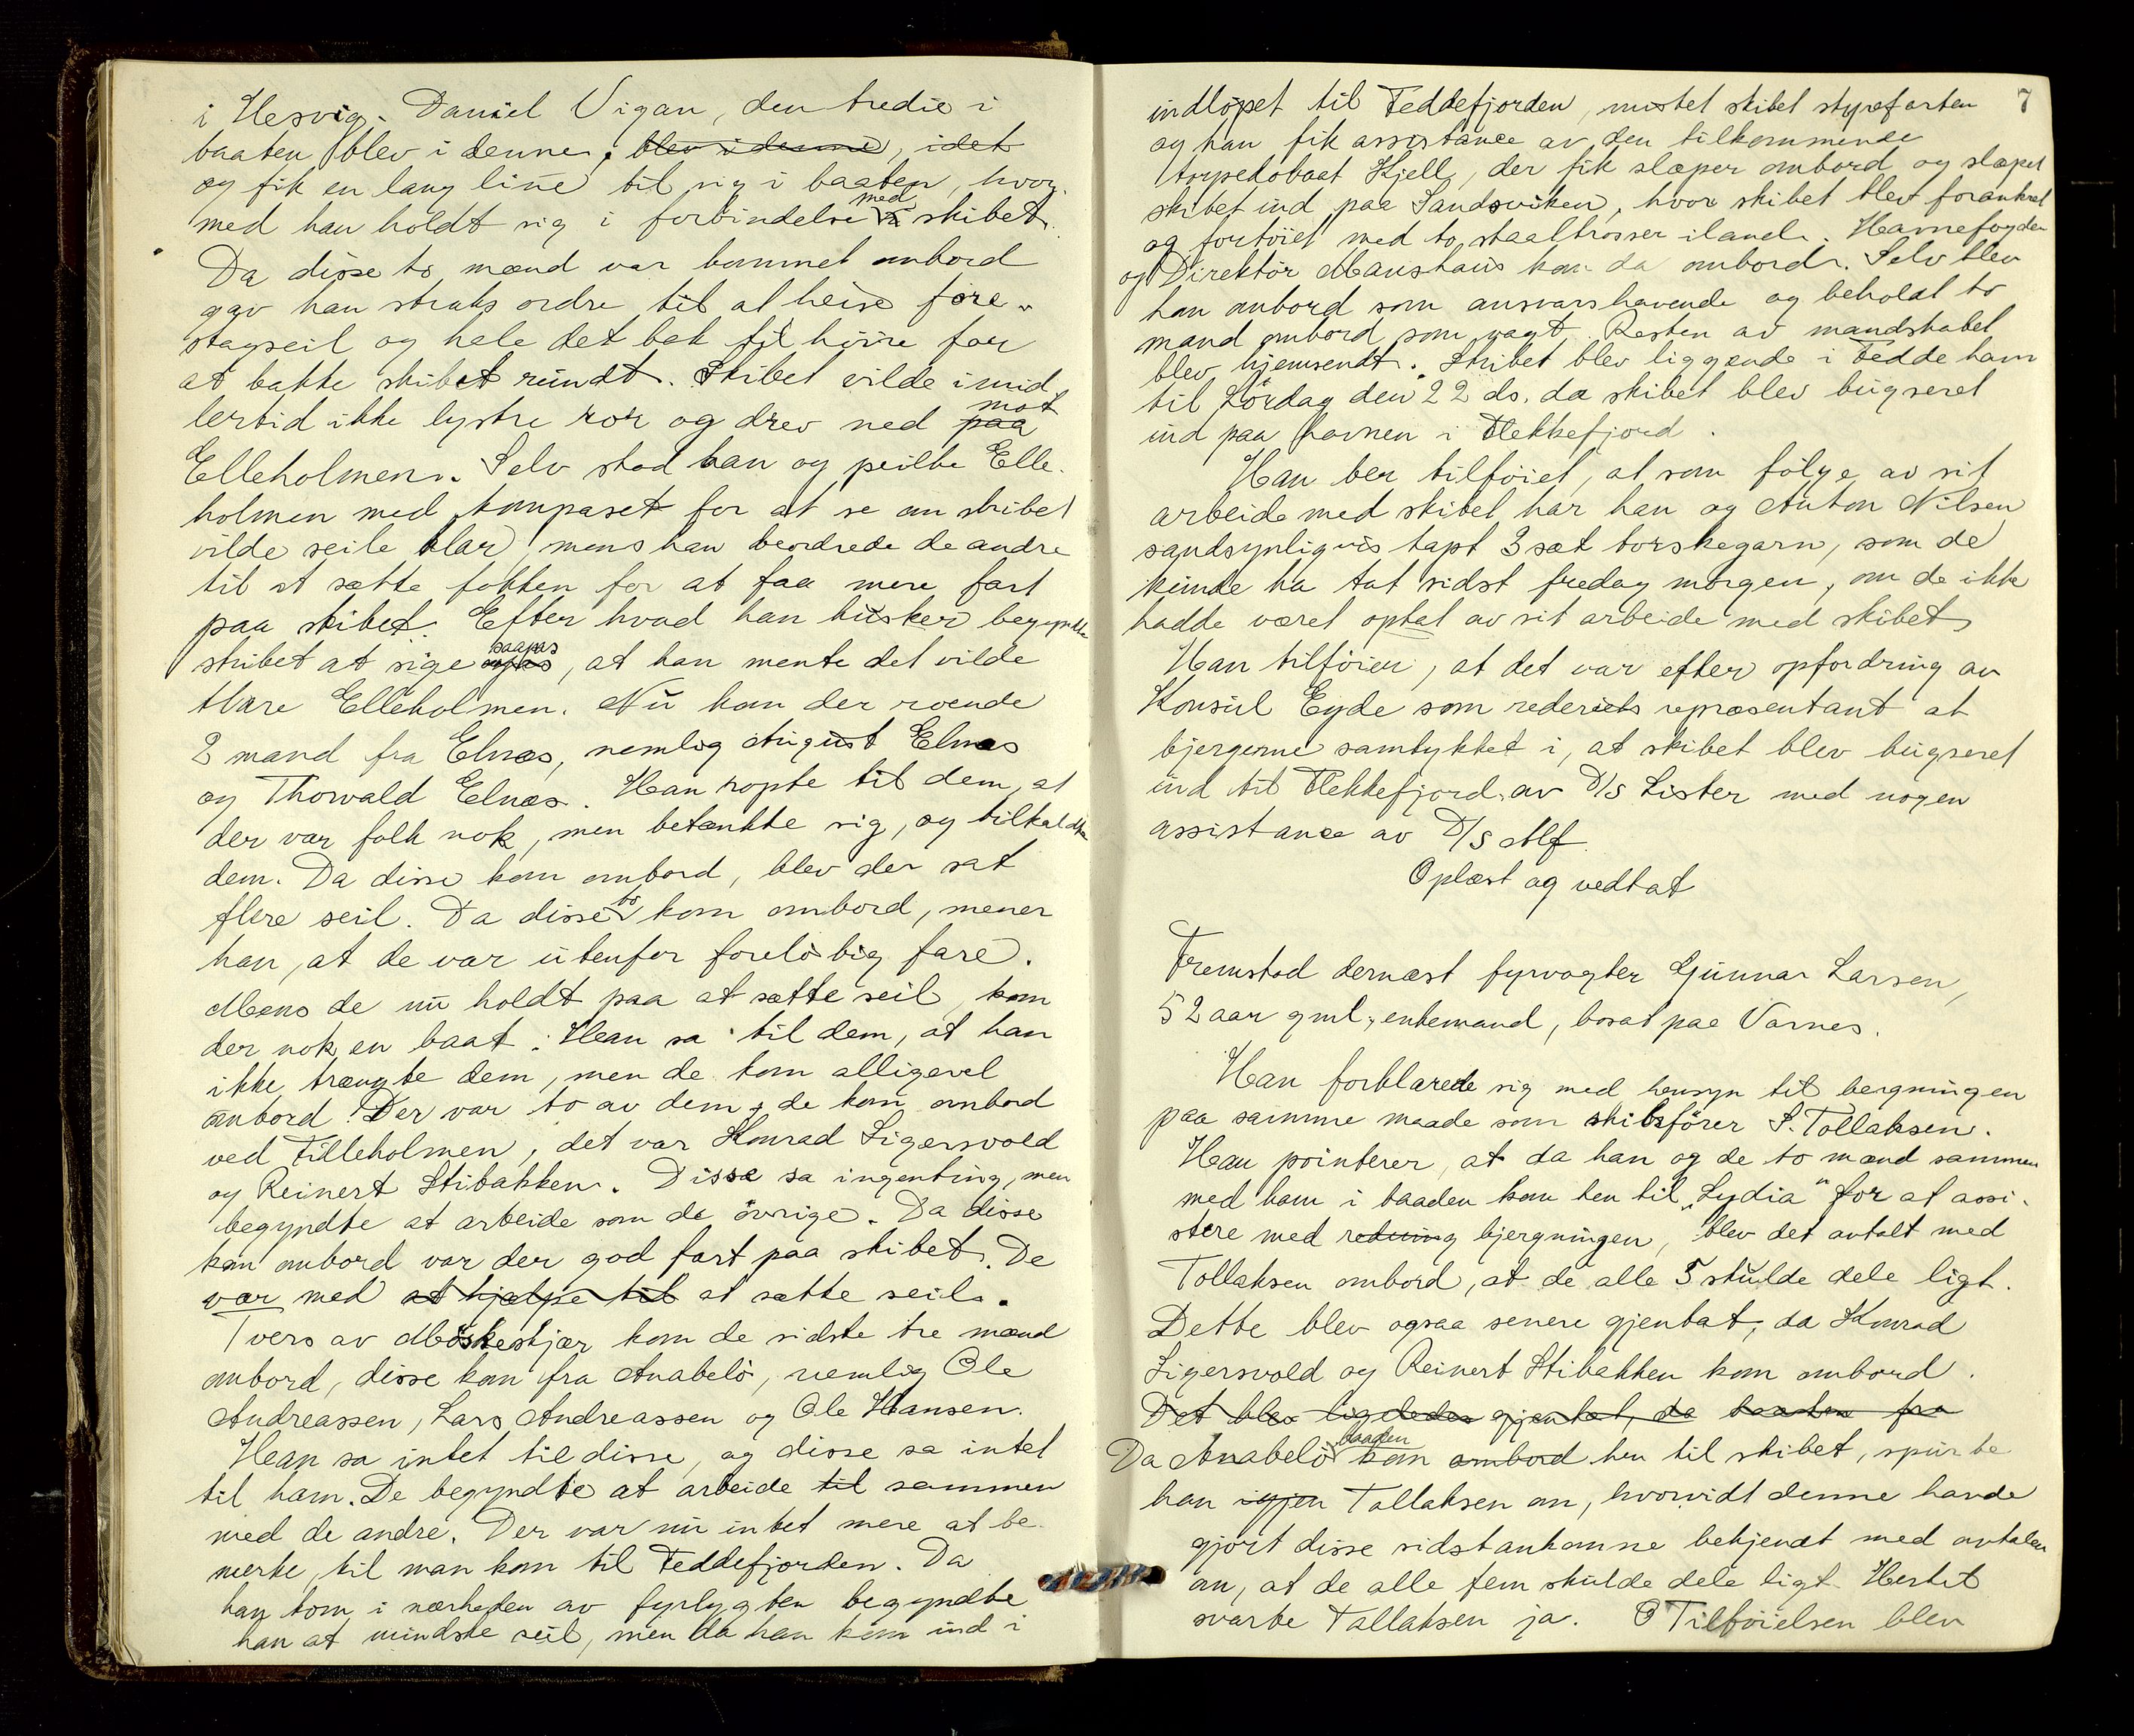 i Hesvig. Daniel Vigan, den tredie i
baaten blev i denne, blev i denne, idet
og fik en lang line til sig i baaten, hvor-
med han holdt sig i forbindelse med skibet.
Da disse to mænd var kommet ombord
gav han straks ordre til at heise fore-
stagseil og hale det bak til høire for
at bakke skibet rundt. Skibet vilde imid-
lertid ikke lystre ror og drev ned paa mot
Elleholmen. Selv stod han og peilte Elle-
holmen med kompaset for at se om skibet
vilde seile klar, mens han beordrede de andre
til at sætte fokken for at faa mere fart
paa skibet. Efter hvad han husker begyndte
skibet at sige saapas, at han mente det vilde
klare Elleholmen. Nu kom der roende
2 mand fra Elnæs, nemlig August Elnæs
og Thorvald Elnæs. Han ropte til dem, at
der var folk nok, men betænkte sig, og tilkaldte
dem. Da disse kom ombord, blev der sat
flere seil. Da disse to kom ombord, mener
han, at de var utenfor foreløbig fare.
Mens de nu holdt paa at sætte seil, kom
der nok en baat. Han sa til dem, at han
ikke trængte dem, men de kom alligevel
ombord. Der var to av dem, de kom ombord
ved Filleholmen, det var Konrad Sigersvold
og Reinert Stibakken. Disse sa ingenting, men
begyndte at arbeide som de øvrige. Da disse
kom ombord var der god fart paa skibet. De
var med at hjælpe til at sætte seil.
Tvers av Møskeskjær kom de sidste tre mænd
ombord, disse kom fra Anabelø, nemlig Ole
Andreassen, Lars Andreassen og Ole Hansen.
Han sa intet til disse, og disse sa intet
til ham. De begyndte at arbeide til sammen
med de andre. Der var nu intet mere at be-
merke, til man kom til Feddefjorden. Da
han kom i nærheden av fyrlygten begyndte
han at mindske seil, men da han kom ind i
7
indløpet til Feddefjorden, mistet skibet styrefarten
og han fik assistance av den tilkommende
torpedobaat Kjell, der fik slæper ombord og slæpet
skibet ind paa Sandsviken, hvor skibet blev forankret
og fortøiet med to staaltrosser iland. Havnefogden
og Direktør Maushaus kom da ombord. Selv blev
han ombord som ansvarshavende og beholdt to
mand ombord som vagt. Resten av mandskabet
blev hjemsendt. Skibet blev liggende i Feddehavn
til Lørdag den 22 ds. da skibet blev bugseret
ind paa havnen i Flekkefjord.
Han ber tilføiet, at som følge av sit
arbeide med skibet har han og Anton Nilsen
sandsynligvis tapt 3 sæt torskegarn, som de
kunde ha tat sidst fredag morgen, om de ikke
hadde været optat av sit arbeide med skibet
Han tilføier, at det var efter opfordring av
Konsul Eyde som rederiets repræsentant at
bjergerne samtykket i, at skibet blev bugseret
ind til Flekkefjord av D/S Lister med nogen
assistance av D/S Alf.
Oplæst og vedtat
Fremstod dernæst fyrvogter Gunnar Larsen,
52 aar gml, enkemand, bosat paa Varnes.
Han forklarede sig med hensyn til bergningen
paa samme maade som skibsfører S. Tollaksen.
Han pointerer, at da han og de to mænd sammen
med ham i baaden kom hen til „Lydia" for at assi-
stere med redning bjergningen, blev det avtalt med
Tollaksen ombord, at de alle 5 skulde dele ligt.
Dette blev ogsaa senere gjentat, da Konrad
Sigersvold og Reinert Stibakken kom ombord.
Det blev ligeledes gjentat, da baaten fra
Da Anabelø baaden kom ombord hen til skibet, spurte
han igjen Tollaksen om, hvorvidt denne havde
gjort disse sidstankomne bekjendt med avtalen
om, at de alle fem skulde dele ligt. Hertil
svarte Tollaksen ja. Tilføielsen blev